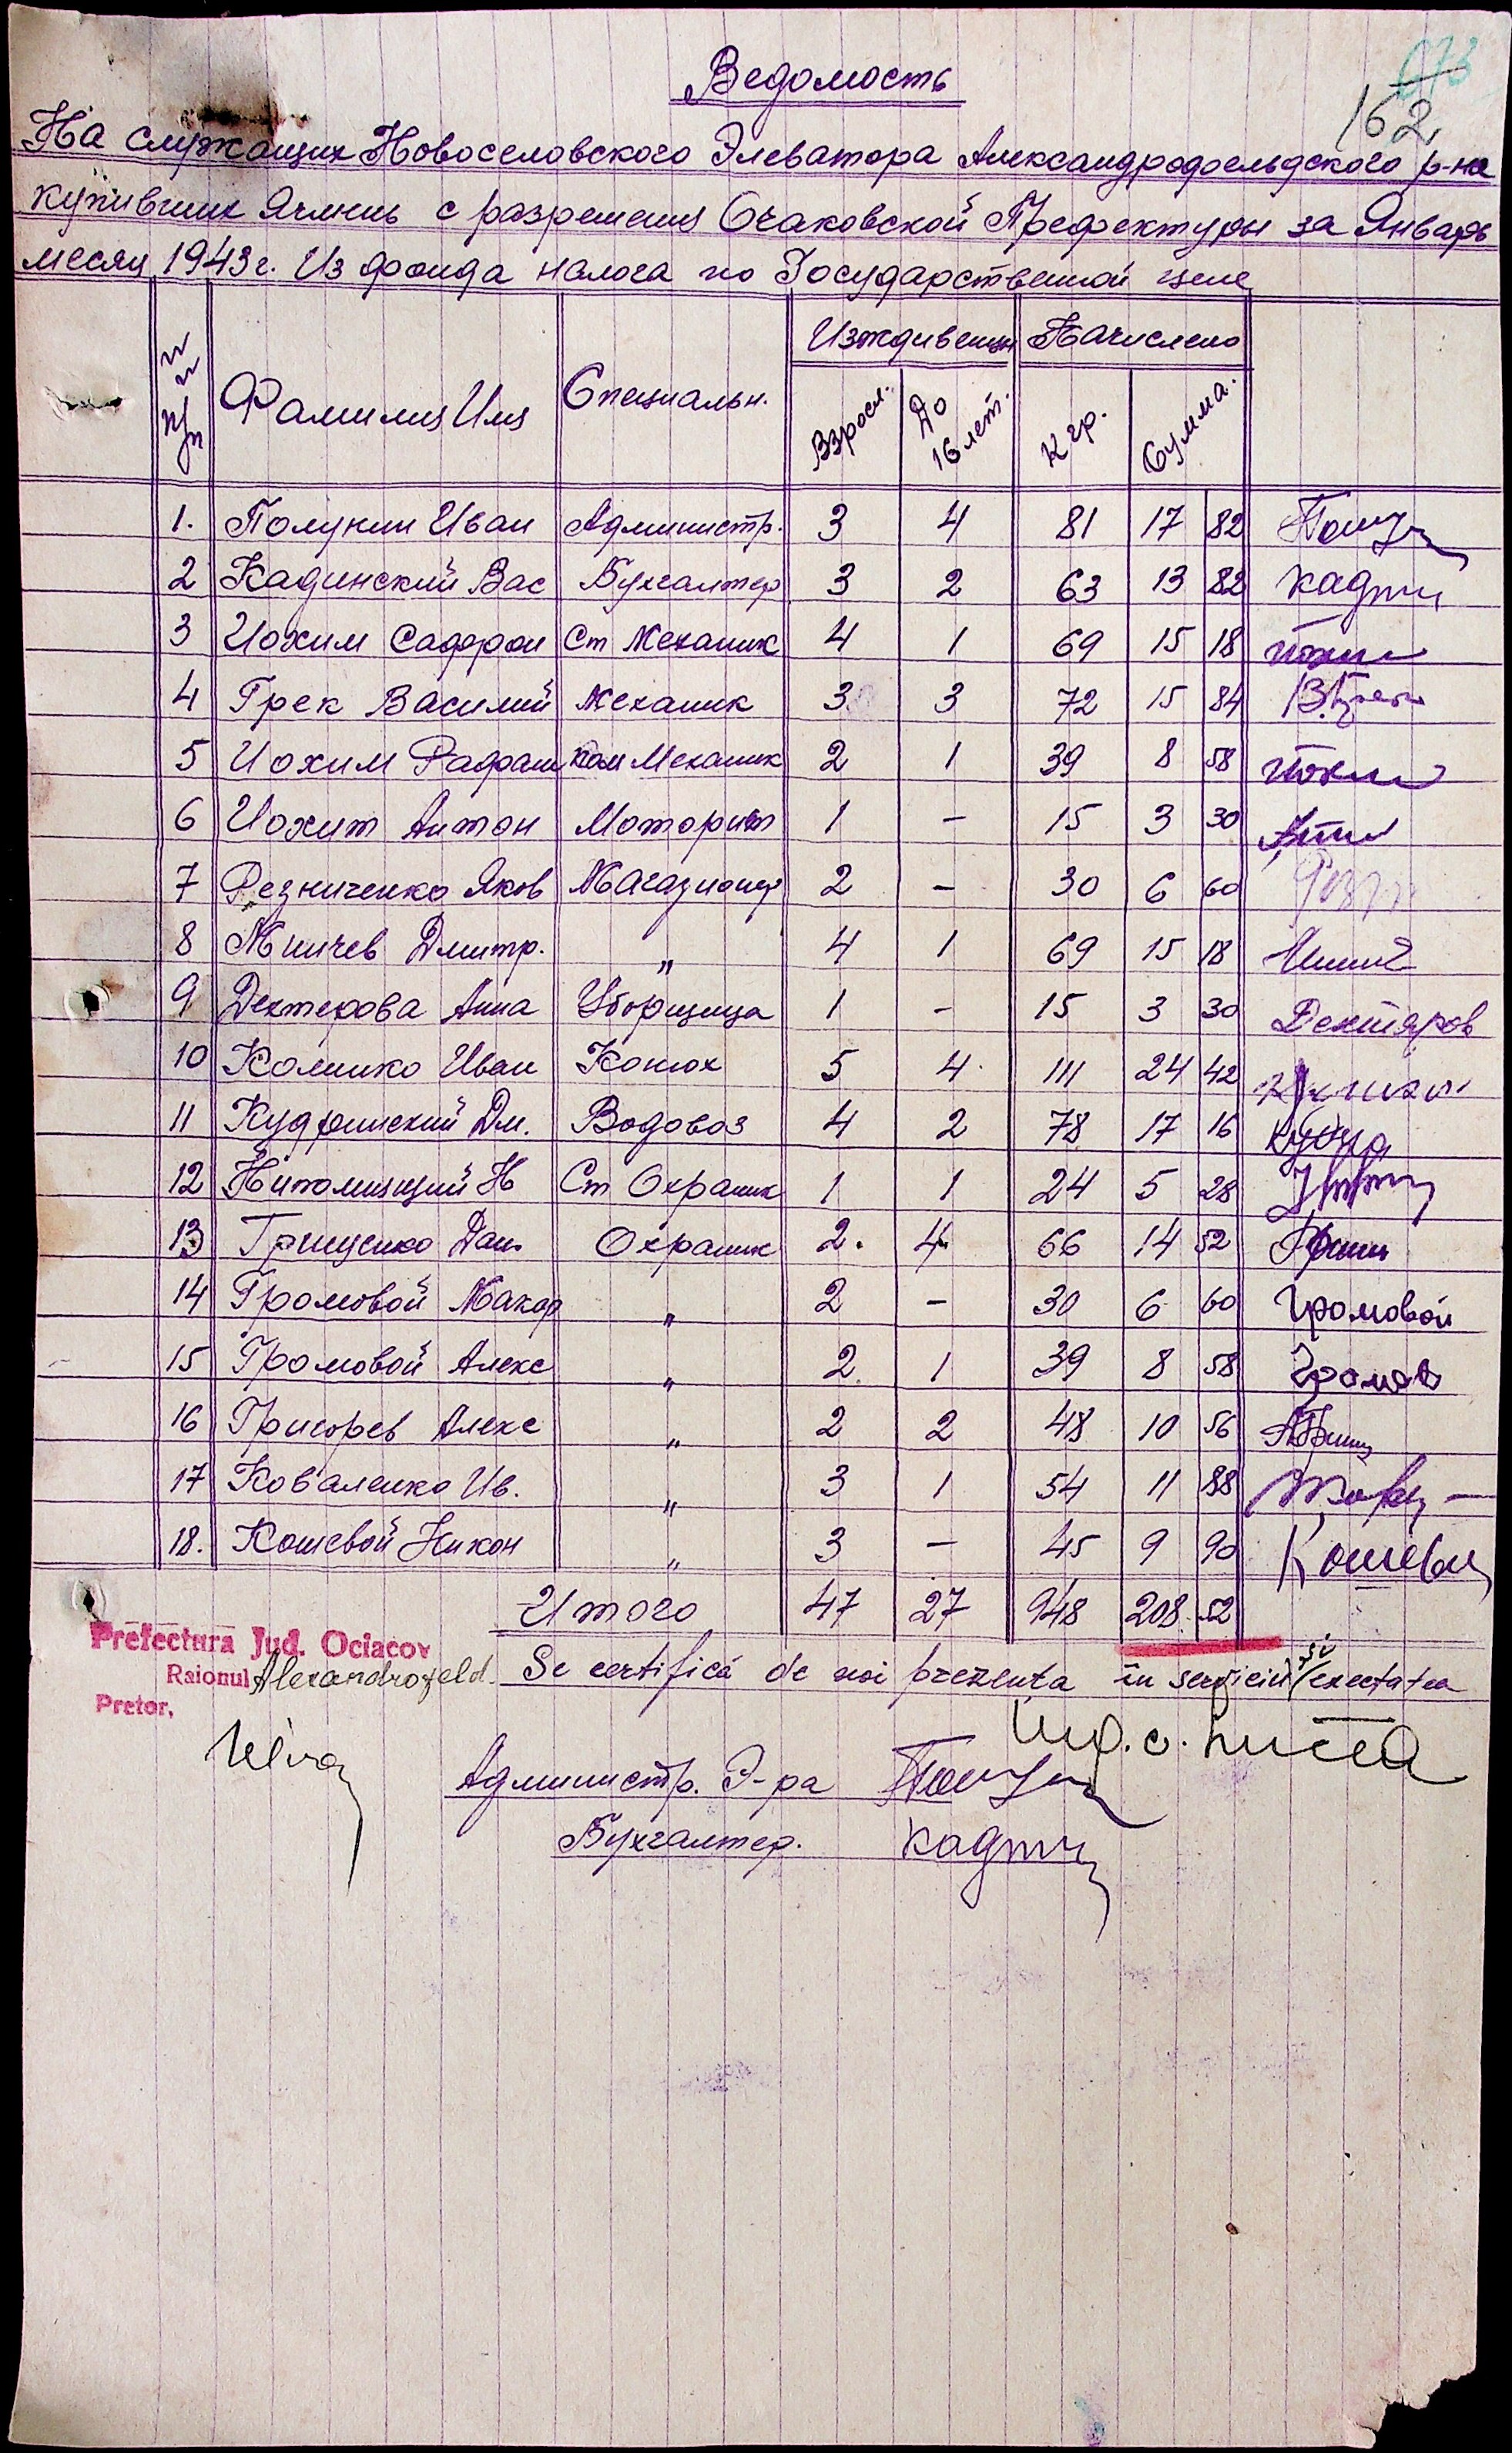 073
162
Ведомость
На служащих Новоселовского Элеватора Александродфельдского р-на
купивших Ячмень с разрешения Очаковской Префектуры за Январь
месяц 1943г. Из фонда налога по Государственной цене
№№ п/п Фамилия Имя Специальн. Изждивенцы Начислено
Взросл. До 16 лет. К гр. Сумма.
1. Полунин Иван Администр. 3 4 81 17 82
2 Кадинский Вас Бухгалтер 3 2 63 13 82
3 Иохим Сафрон Ст Механик 4 1 69 15 18
4 Грек Василий Механик 3 3 72 15 84 В.Грек
5 Иохим Рафаил Механик 2 1 39 8 58
6 Иохим Антон Моторист 1 - 15 3 30
7 Резниченко Яков Магазионер 2 - 30 6 60
8 Минчев Дмитр. " 4 1 69 15 18
9 Дехтерова Анна Уборщица 1 - 15 3 30 Дехтяров
10 Комшко Иван Конюх 5 4 111 24 42
11 Кудринский Дм. Водовоз 4 2 78 17 16
12 Нитомицкий Н Ст Охраник 1 1 24 5 28
13 Грищенко Дан. Охраник 2. 4 66 14 52
14 Громовой Макар " 2 - 30 6 60 Громовой
15 Громовой Алекс " 2 1 39 8 58 Громов
16 Григорев Алекс " 2 2 48 10 56
17 Коваленко Ив. " 3 1 54 11 88
18. Кошевой Никон " 3 - 45 9 90 Кошевой
Итого 47 27 948 208 52
Prefectura Jud. Ociacov
Raionul Alexandrofeld.
Pretor,
Se certifică de noi prezenta în serviciu și exectatea
Администр. Э-ра
Бухгалтер.